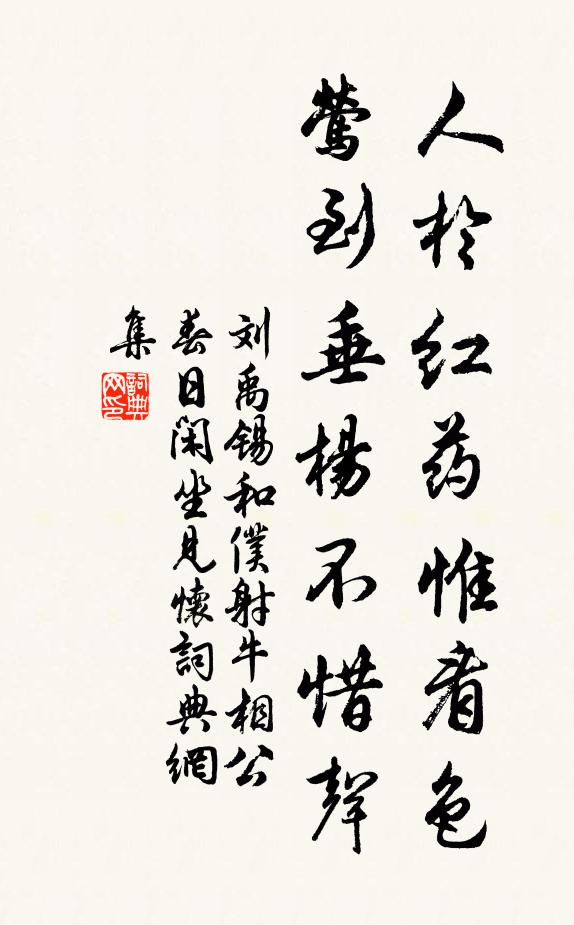 人於红药惟看色
莺到垂楊不惜聲
刘禹锡和僕射牛相公
春日闲坐見懷詞典網
集
詞典网印